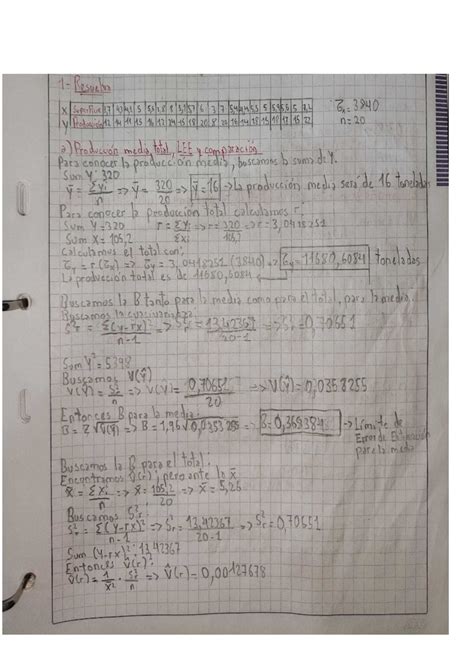 1- Resuelva
X Superficie 5 5 5
Y Producción 12 14 11 15 16 18 20 8
τx = 3840
n = 20
a) Producción media, total, LEE y comparación
Para conocer la producción media, buscamos la suma de Y.
Sum Y = 320
ȳ = Σyi/n => ȳ = 320/20 => ȳ = 16 => La producción media será de 16 toneladas
Para conocer la producción total calculamos r.
Sum Y = 320 r = Σyi/Σxi => r = 320/105,2 => r = 3,0418251
Sum X = 105,2
Calculamos el total con:
τy = r (τx) => τy = 3,0418251 (3840) => τy = 11680,6084 toneladas
La producción total es de 11680,6084
Buscamos la B tanto para la media como para el total, para la media:
Buscamos la
S²r = Σ(Y-rX)²/n-1 => S²r = 13,42367/20-1 => S²r = 0,70651
Sum Y² = 5398
Buscamos V(Ŷ)
V(Ŷ) = S²r/n => V(Ŷ) = 0,70651/20 => V(Ŷ) = 0,0353255
Entonces B para la media:
B = Z √V(Ŷ) => B = 1,96 √0,0353255 => B = 0,368384 -> Límite de
Error de Estimación
para la media
Buscamos la B para el total:
Encontramos V̂(r), pero ante la x̄
x̄ = Σxi/n => x̄ = 105,2/20 => x̄ = 5,26
Buscamos S²r:
S²r = Σ(Y-rX)²/n-1 => S²r = 13,42367/20-1 => S²r = 0,70651
Sum (Y-rX)² = 13,42367
Entonces V̂(r):
V̂(r) = 1/x̄² · S²r/n => V̂(r) = 0,00127678